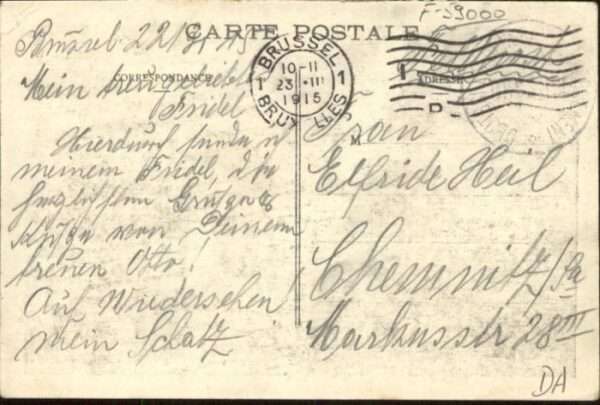 F-39000
CARTE POSTALE
CORRESPONDANCE
ADRESSE
BRUSSEL
1 10-11 1
23 III
1915
BRUXELLES
D
Brüssel 22/3 15
Mein treugeliebte
Fridel
Hierdurch sende ich
meinem Fridel, die
herzlichsten Grüße &
Küße von Deinem
treuen Otto.
Auf Wiedersehen
mein Schatz
Frau
Elfride Heil
Chemnitz/Sa
Markusstr 28 III
DA